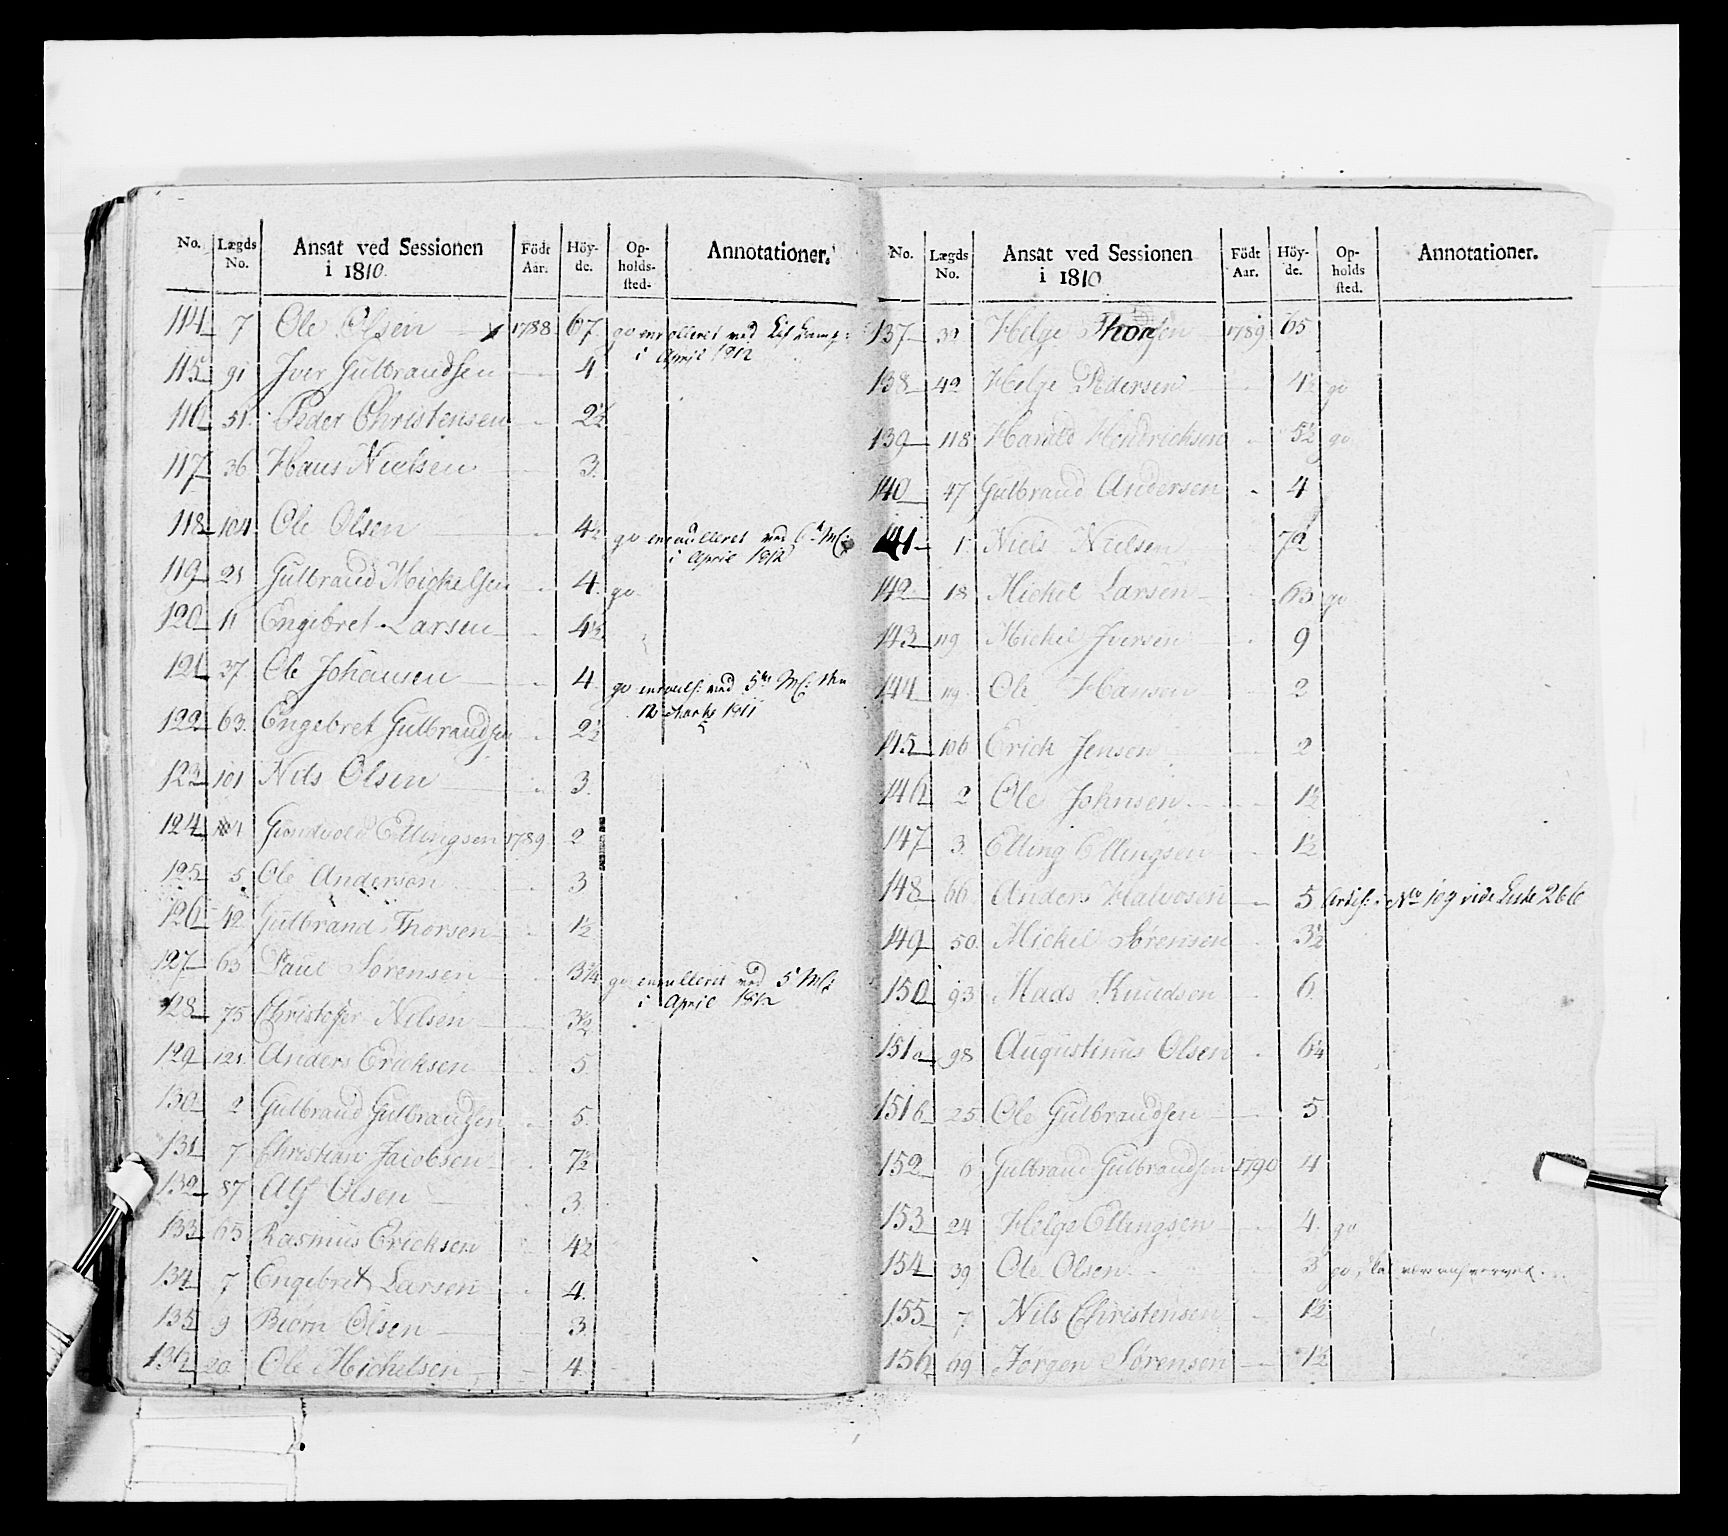 No. Lægds No. Ansat ved Sessionen i 1810. Födt Aar. Höy-de. Op-holds-sted. Annotationer.
114 7 Ole Olsen 1788 67. go enrolleret ved
i April 1812
115 91 Iver Gulbrandsen 4
116 51. Peder Christensen 2½
117 36 Hans Nielsen 3.
118 104 Ole Olsen 4½ go enrulleret ved
i April 1812
119 21 Gulbrand Mickelsen 4. go
120 11 Engebret Larsen 4½
121 37 Ole Johansen 4 go
12 Marts 1811
122 63. Engebret Gulbrandsen 2½
123 101 Nils Olsen 3.
124 Gundvold Ellingsen 1789 2
125 5. Ole Andersen 3
126 42 Gulbrand Thorsen 1½
127 63 Paul Sørensen 3¼ go enrulleret ved 5
i April 1812
128 75 Christofer Nilsen 3½
129 121 Anders Ericksen 5.
130 2 Gulbrand Gulbrandsen 5.
131 7 Christian Jacobsen 7½
132 87 Alf Olsen 3.
133 65 Rasmus Ericksen 4½
134 7 Engebret Larsen 4.
135 9 Biørn Olsen 3.
136 20 Ole Michelsen 4.
No. Lægds No. Ansat ved Sessionen i 1810 Födt Aar. Höy-de. Op-holds sted. Annotationer.
137 39 Helge Thorsen 1789 65
138 42 Helge Pedersen 4½ go
139 118 Harald Hendricksen 5½ go
140 47 Gulbrand Andersen 4
141 1 Niels Nielsen 72
142 18 Mickel Larsen 63 go
143 119 Mickel Iversen 9
144 119 Ole Hansen 2
145 106 Erick Jensen 2
146 2 Ole Johnsen 1½
147 3. Elling Ellingsen 1½
148 66 Anders Halvosen 5 No 109 vide Liste 266
149 50. Mickel Sørensen 3½
150 93 Mads Knudsen 6
151a 98 Augustinus Olsen 6¼
151b 25 Ole Gulbrandsen 5
152 6 Gulbrand Gulbrandsen 1790 4
153 24 Helge Ellingsen 4. go
154 39 Ole Olsen 3 go,
155 7 Nils Christensen 1½
156 69 Jørgen Sørensen 1½